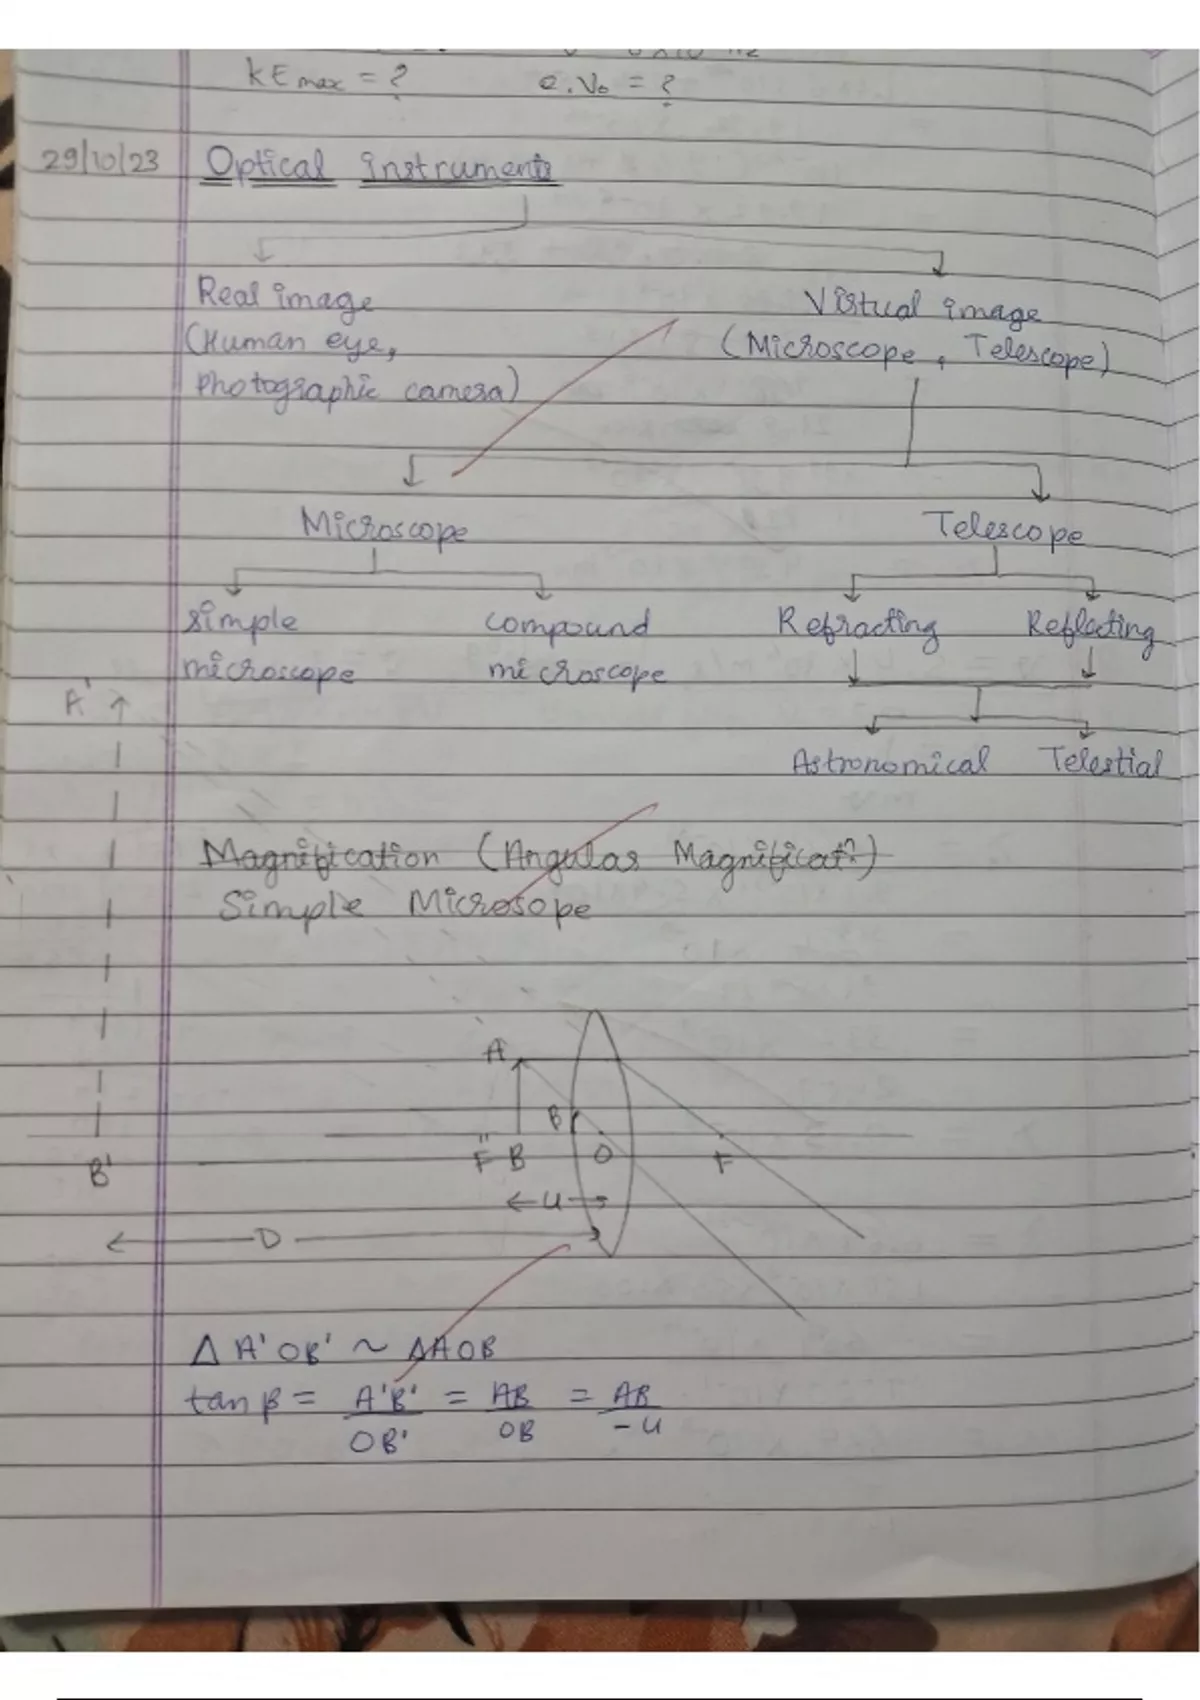 KE max = ?    e.V₀ = ?
29/10/23 Optical instruments
Real image
(Human eye,
photographic camera)
Virtual image
(Microscope, Telescope)
Microscope    Telescope
simple microscope
compound microscope
Refracting    Reflecting
Astronomical    Telestial
Magnification (Angular Magnificatⁿ)
Simple Microsope
A'
A
β
F B    O    F
B'
u
D
Δ A'OB' ~ ΔAOB
tan β = A'B'/OB' = AB/OB = AB/-u